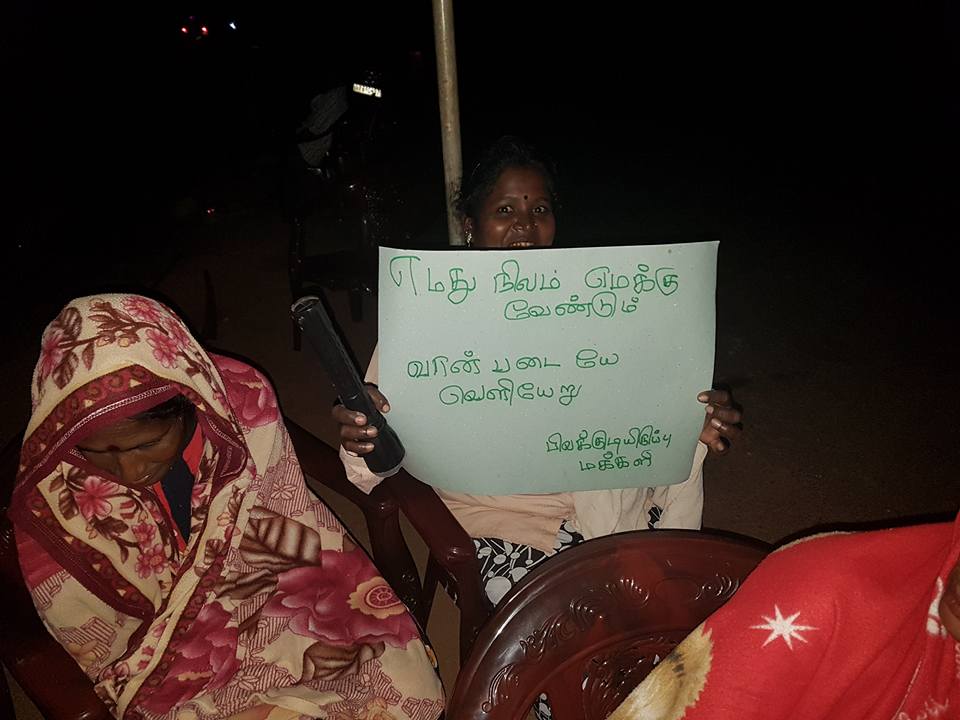 எமது நிலம் எமக்கு
வேண்டும்
வான் படை யே
வெளியேறு
பிலக்குடியிருப்பு
மக்கள்